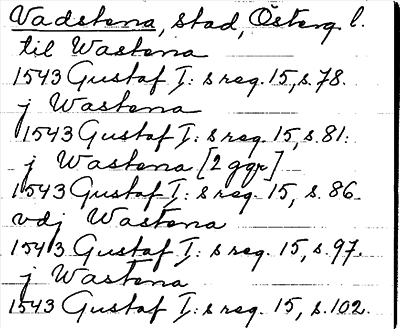 Vadstena, stad, Österg. l.
til Wastena
1543 Gustaf I: s reg. 15, s. 78.
j Wastena
1543 Gustaf I: s reg. 15, s. 81.
j Wastena [2 ggr]
1543 Gustaf I: s reg. 15, s. 86.
vdj Wastena
1543 Gustaf I: s reg. 15, s. 97.
j Wastena
1543 Gustaf I: s reg. 15, s. 102.